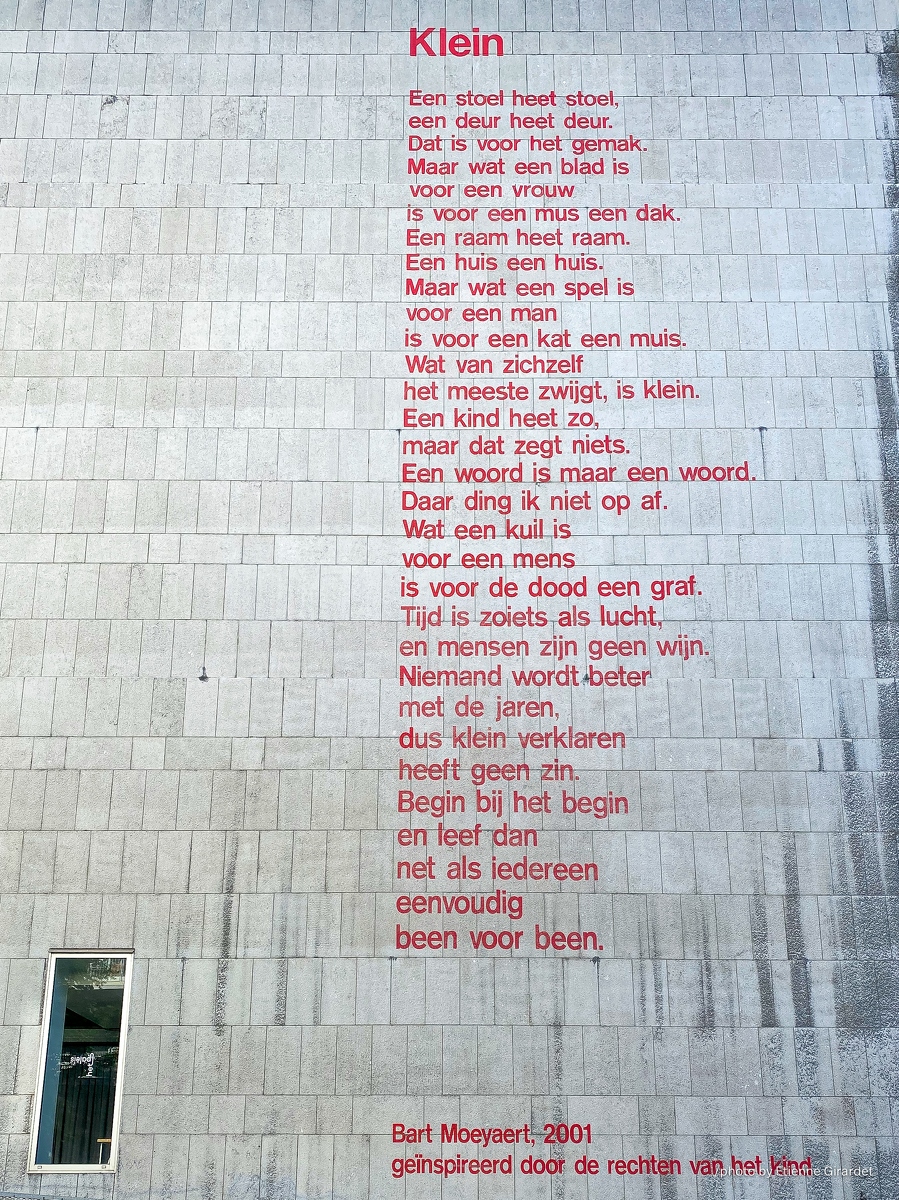 Klein
Een stoel heet stoel,
een deur heet deur.
Dat is voor het gemak.
Maar wat een blad is
voor een vrouw
is voor een mus een dak.
Een raam heet raam.
Een huis een huis.
Maar wat een spel is
voor een man
is voor een kat een muis.
Wat van zichzelf
het meeste zwijgt, is klein.
Een kind heet zo,
maar dat zegt niets.
Een woord is maar een woord.
Daar ding ik niet op af.
Wat een kuil is
voor een mens
is voor de dood een graf.
Tijd is zoiets als lucht,
en mensen zijn geen wijn.
Niemand wordt beter
met de jaren,
dus klein verklaren
heeft geen zin.
Begin bij het begin
en leef dan
net als iedereen
eenvoudig
been voor been.
het
paleis
Bart Moeyaert, 2001
geïnspireerd door de rechten van het kind
/photo by Etienne Girardet